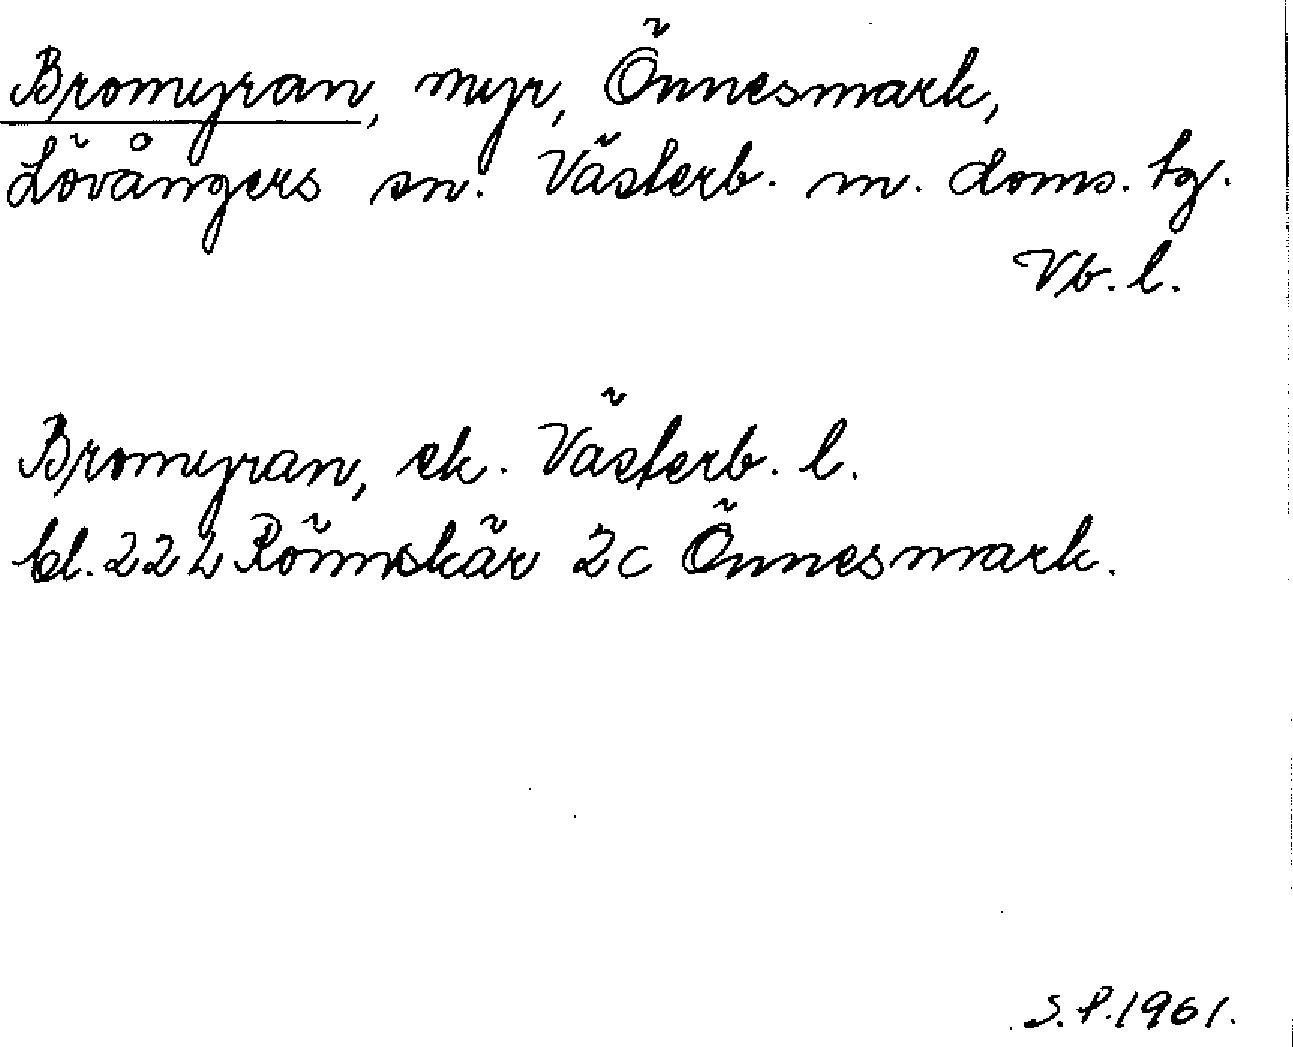 Bromyran, myr, Önnesmark,
Lövångers sn. Västerb. m. doms. tg.
Vb. l.
Bromyran, ek. Västerb. l.
bl. 22 L Rönnskär 2c Önnesmark.
S.P. 1961.